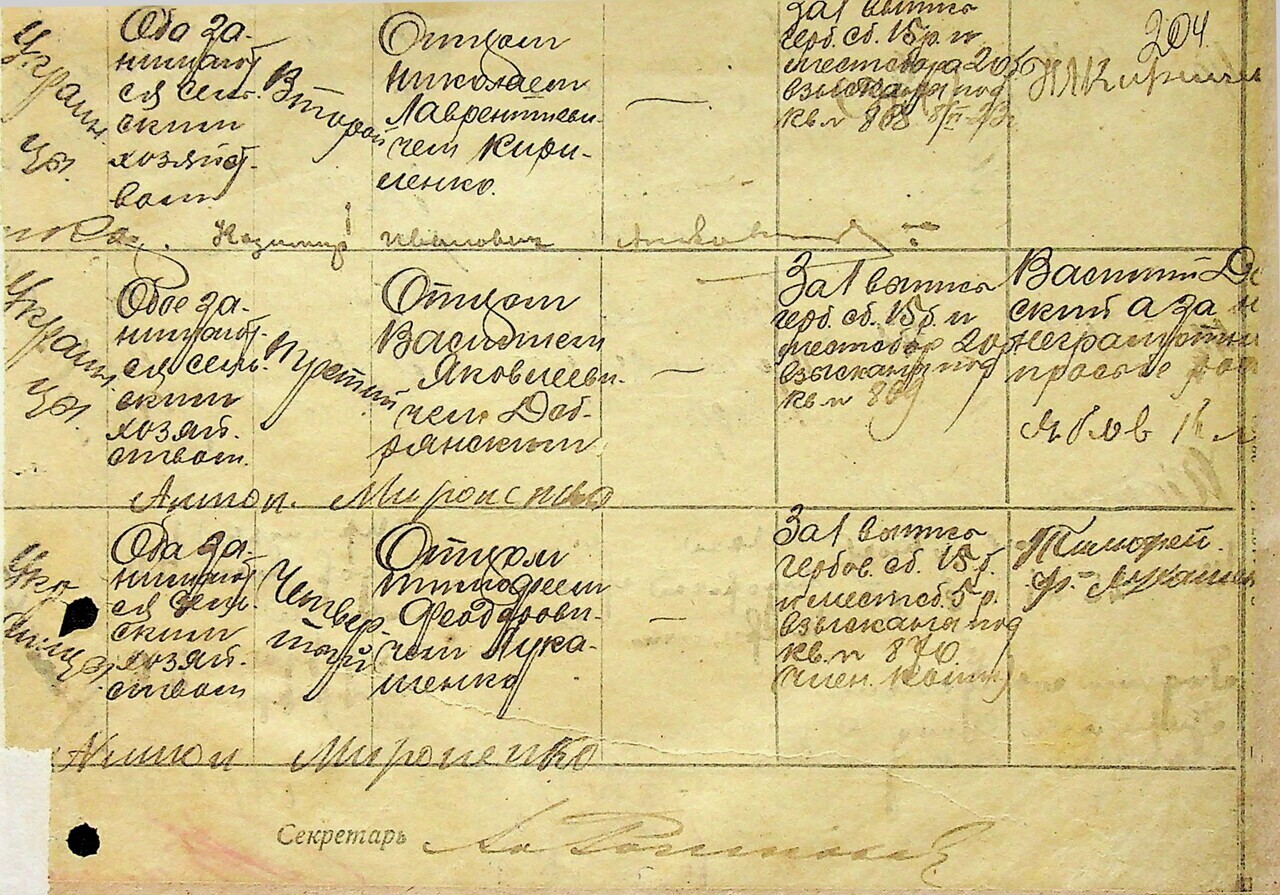 204
Украин
цы.
Оба за-
нимают
ся сель-
ским
хозяйст-
вом
Второй
Отцом
Николаем
Лаврентиеви-
чем Кири-
ленко.
—
За 1 выпись
герб. сб. 15 р. и
местсбора 20 р
взыскана под
кв. № 868
Казимир Иванович
Украин
цы.
Обое за-
нимают-
ся сель-
ским
хозяй-
ством.
Третий
Отцом
Василием
Яковлеви-
чем Доб-
рянским
—
За 1 выпись
герб. сб. 15 р. и
местсбор 20 р
взыскана под
кв. № 869
Василий До
ский а за
неграмотн
просьбе
Яков
Антон Мироненко
Укра
инцы.
Оба за-
нимают
ся сель-
ским
хозяй-
ством
Четвер-
тый
Отцом
Тимофеем
Феодорови-
чем Лука-
шенко
—
За 1 выпись
гербов. сб. 15 р.
и местсб. 5 р.
взыскана под
кв. № 870.
Тимофей
Антон Мироненко
Секретарь